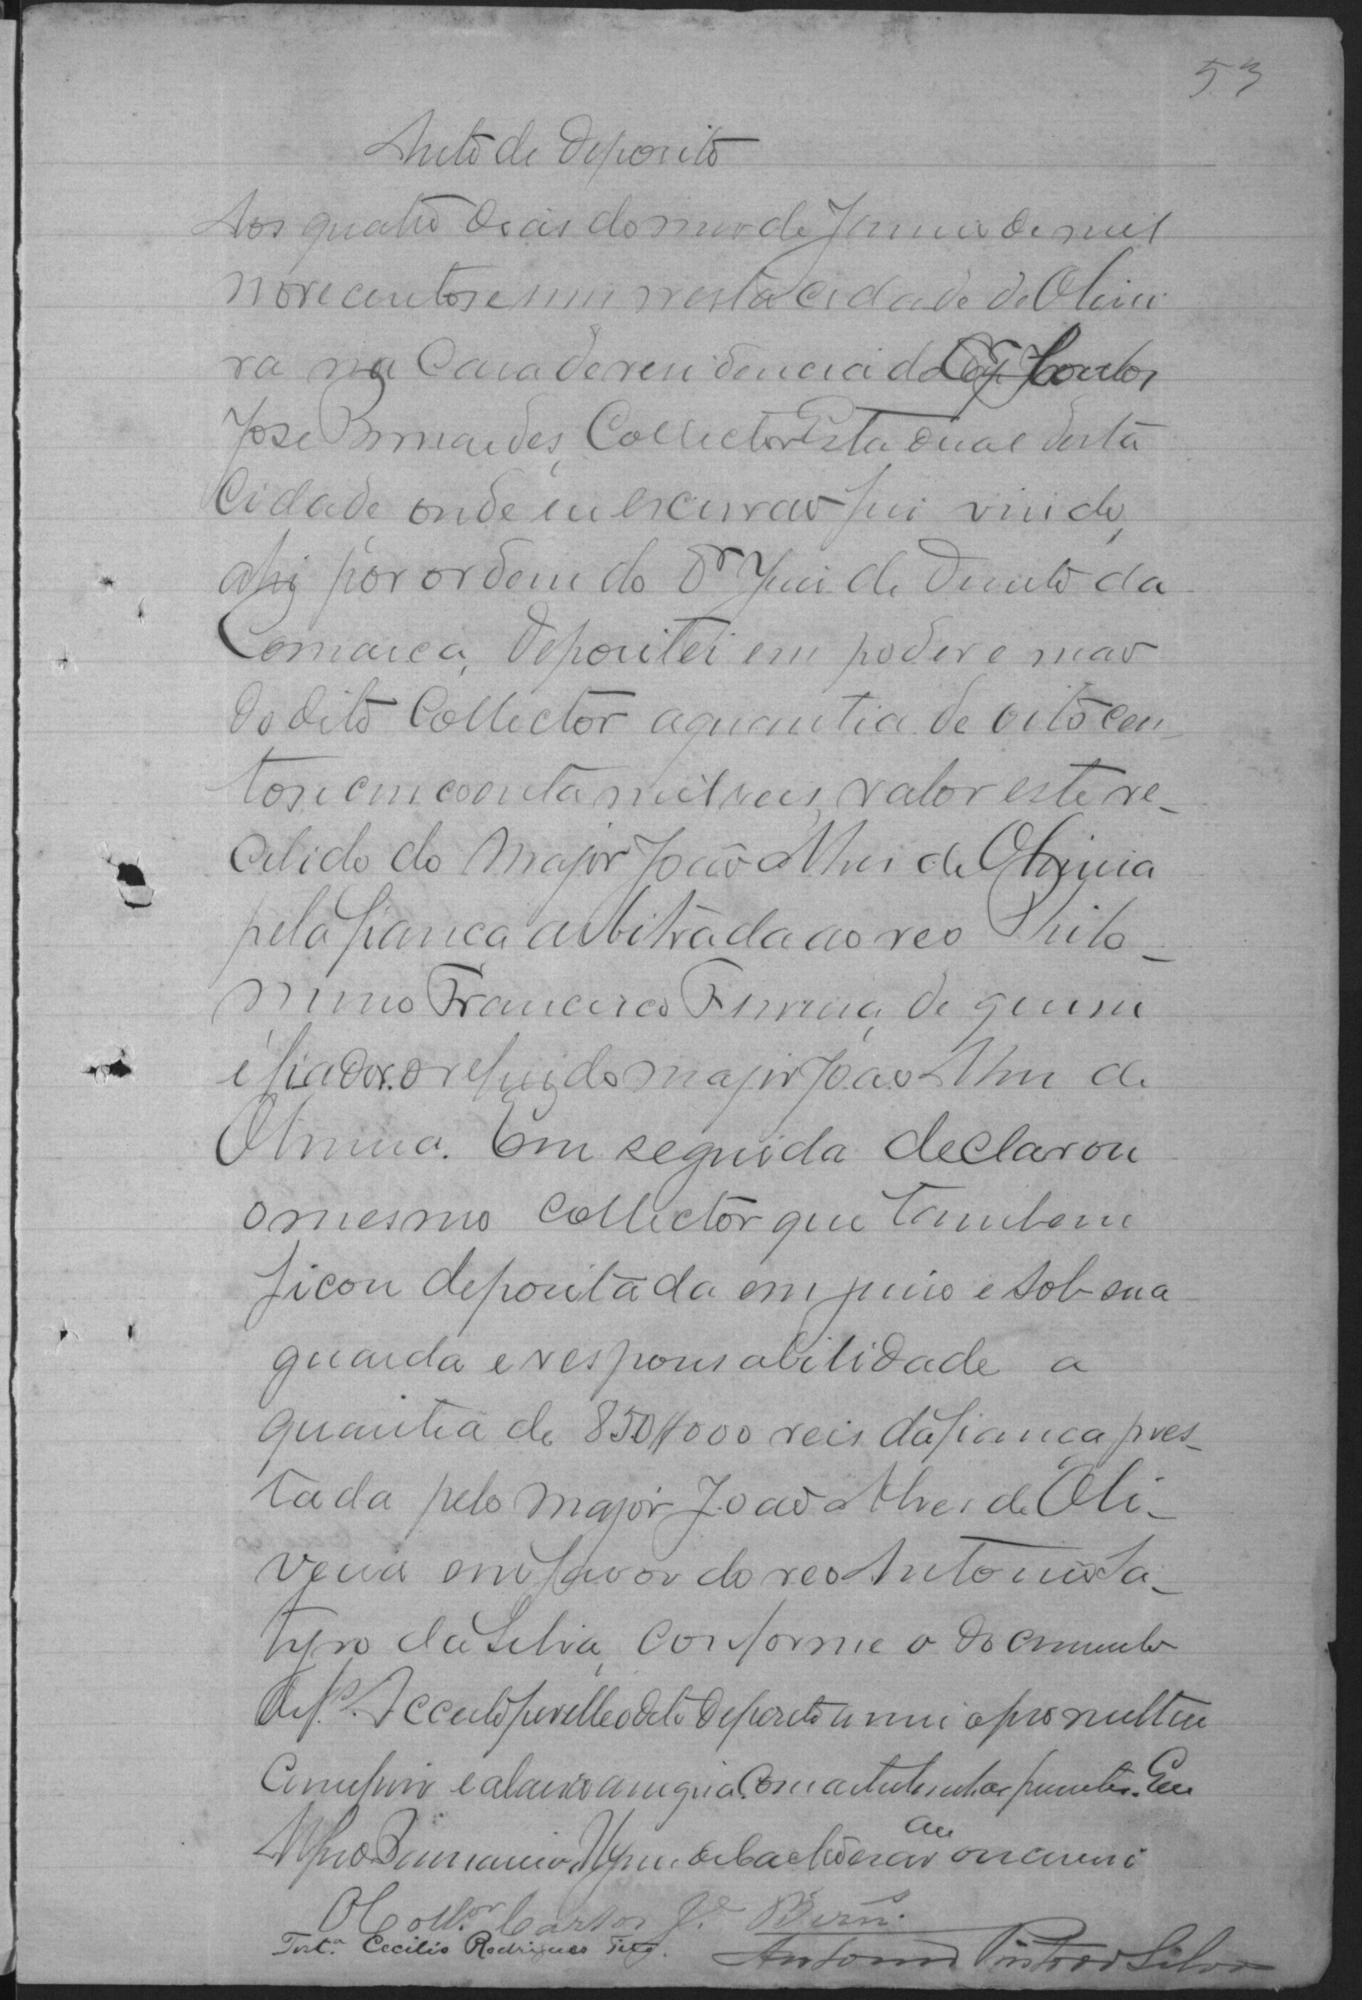 53
Auto de Deposito
Aos quatro dias do mes de Janeiro de mil
novecentos e um nesta cidade de Olivei
ra na Casa de residencia do Cap Carlos
Jose Bernardes, Collector Estadual desta
Cidade onde eu escrivão fui vindo,
ahi por ordem do Dr Juis de Direito da
Comarca, depositei em poder e mão
do dito Collector a quantia de oitocen
tos e cincoenta mil reis, valor este re_
cebido do Major João Alves de Oliveira
pela fiança arbitrada ao reo Philo_
mino Francisco Ferreira, de quem
é fiador o referido major João Alves de
Oliveira. Em seguida declarou
o mesmo Collector que tambem
ficou depositada em juiso e sob sua
guarda e responsabilidade a
quantia de 850$000 reis da fiança pres_
tada pelo Major João Alves de Oli_
veira em favor do reo Antonio Sa_
tyro da Silva, conforme o documento
de fs. Acceito por elle o dito deposito assim o prometteu
cumprir e abaixo assigna com as testemunhas presentes. Eu
Pinheiro escrivão o escrevi
O Coll.or Carlos J.e Bern.es
Test.a Cecilio Rodrigues
Antonio Pinto da Silva